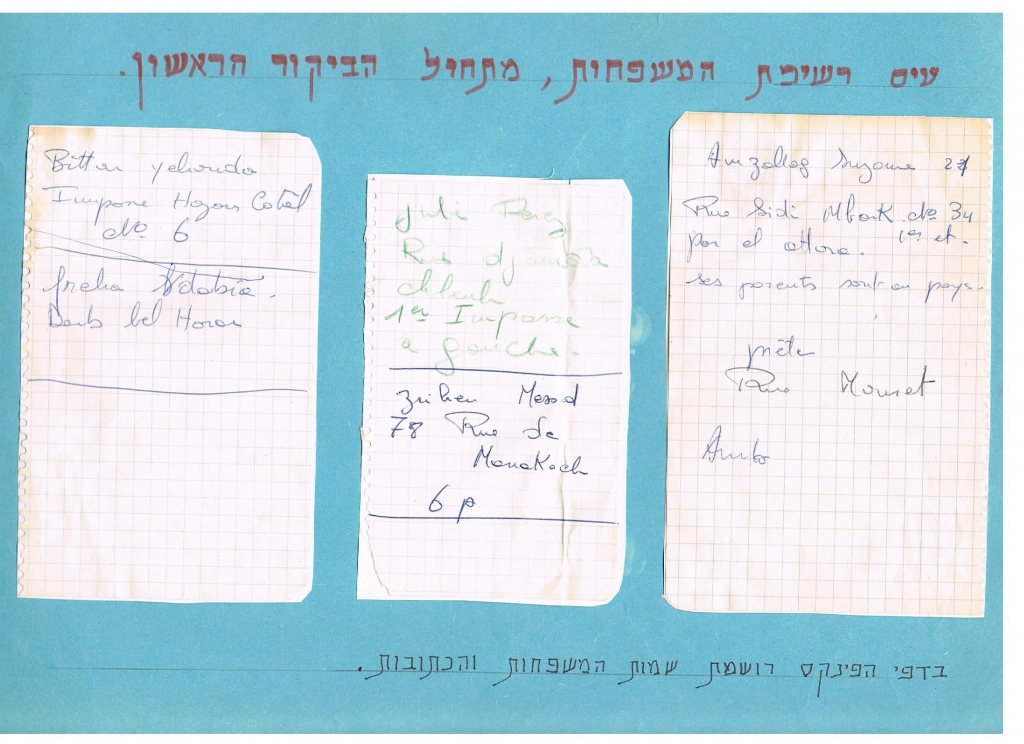 עים רשימת המשפחות, מתחיל הביקור הראשון.
Bitton yehouda
Impasse Hazan
No 6
freha
Derb bel Horar
juli Perez
Rue djamâa
chleuh
1er Impasse
a gauche.
Zrihen Mesod
78 Rue de
Marakech
6 p
Amzallag Suzanne 27
Rue Sidi Mbark No 34
par el attara. 1er et.
ses parents sont au pays.
Rue Mouset
בדפי הפינקס רושמת שמות המשפחות והכתובות.